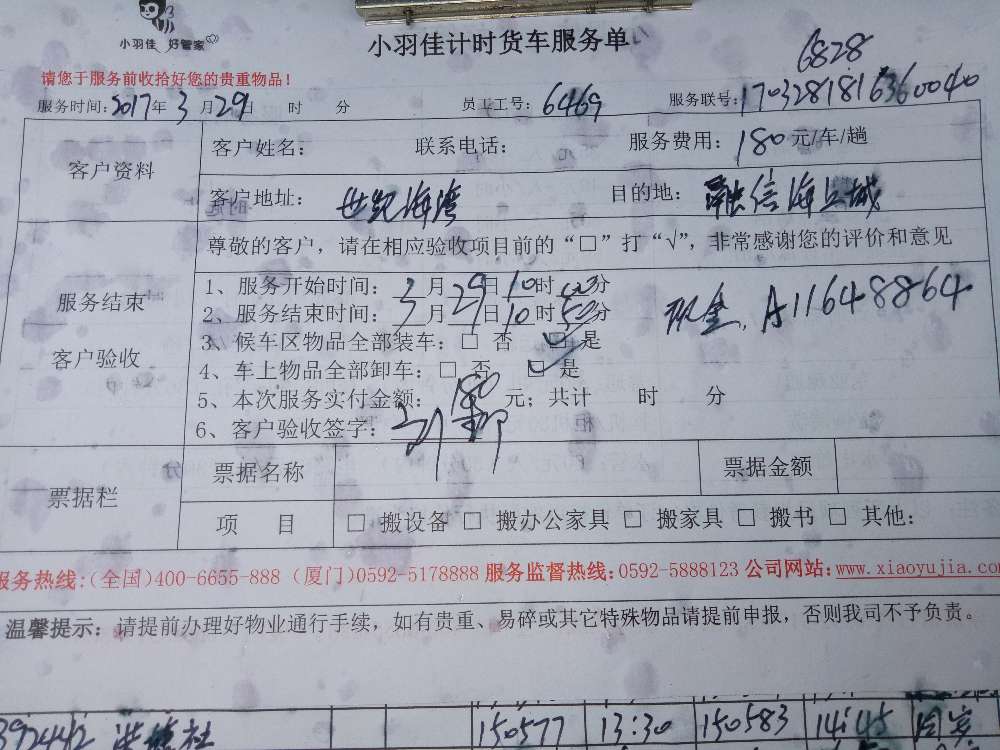 小羽佳 好管家
小羽佳计时货车服务单
6828
请您于服务前收拾好您的贵重物品！
服务时间：2017年 3 月 29日 时 分 员工工号：6469 服务联号：1703281816360040
客户资料
客户姓名： 联系电话： 服务费用：180元/车/趟
客户地址：世纪海湾 目的地：融信海上城
服务结束
客户验收
尊敬的客户，请在相应验收项目前的“□”打“√”，非常感谢您的评价和意见
1、服务开始时间：3月29日10时 分
2、服务结束时间：3月29日10时50分
现金，A11648864
3、候车区物品全部装车：□ 否 □ 是
4、车上物品全部卸车：□ 否 □ 是
5、本次服务实付金额：180元；共计 时 分
6、客户验收签字：
票据栏
票据名称 票据金额
项 目 □ 搬设备 □ 搬办公家具 □ 搬家具 □ 搬书 □ 其他：
服务热线：（全国）400-6655-888（厦门）0592-5178888 服务监督热线：0592-5888123 公司网站：www.xiaoyujia.com
温馨提示：请提前办理好物业通行手续，如有贵重、易碎或其它特殊物品请提前申报，否则我司不予负责。
392442 150577 13:30 150583 14:45